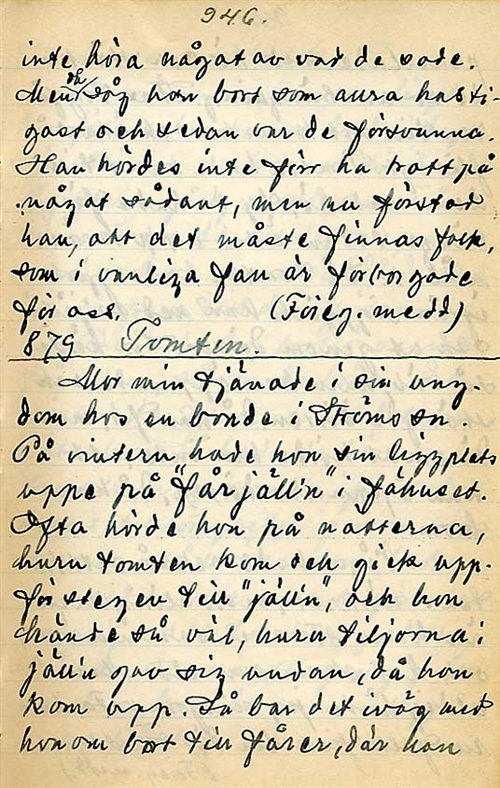 946.
inte höra något av vad de sade.
Men då såg han bort som aura hasti-
gast och sedan var de försvunna.
Han hördes inte förr ha trott på
något sådant, men nu förstod
han, att det måste finnas folk,
som i vanliga fall är förborgade
för oss. (Föreg. medd)
879 Tomten.
Mor min tjänade i sin ung-
dom hos en bonde i Ströms sn.
På vintern hade hon sin liggplats
uppe på "fårjäll'n" i fähuset.
Ofta hörde hon på nätterna,
huru tomten kom och gick upp-
för stegen till "jäll'n", och hon
kände så väl, huru tiljorna i
jäll'n gav sig undan, då hon
kom upp. Så bar det iväg med
honom bort till fåren, där han